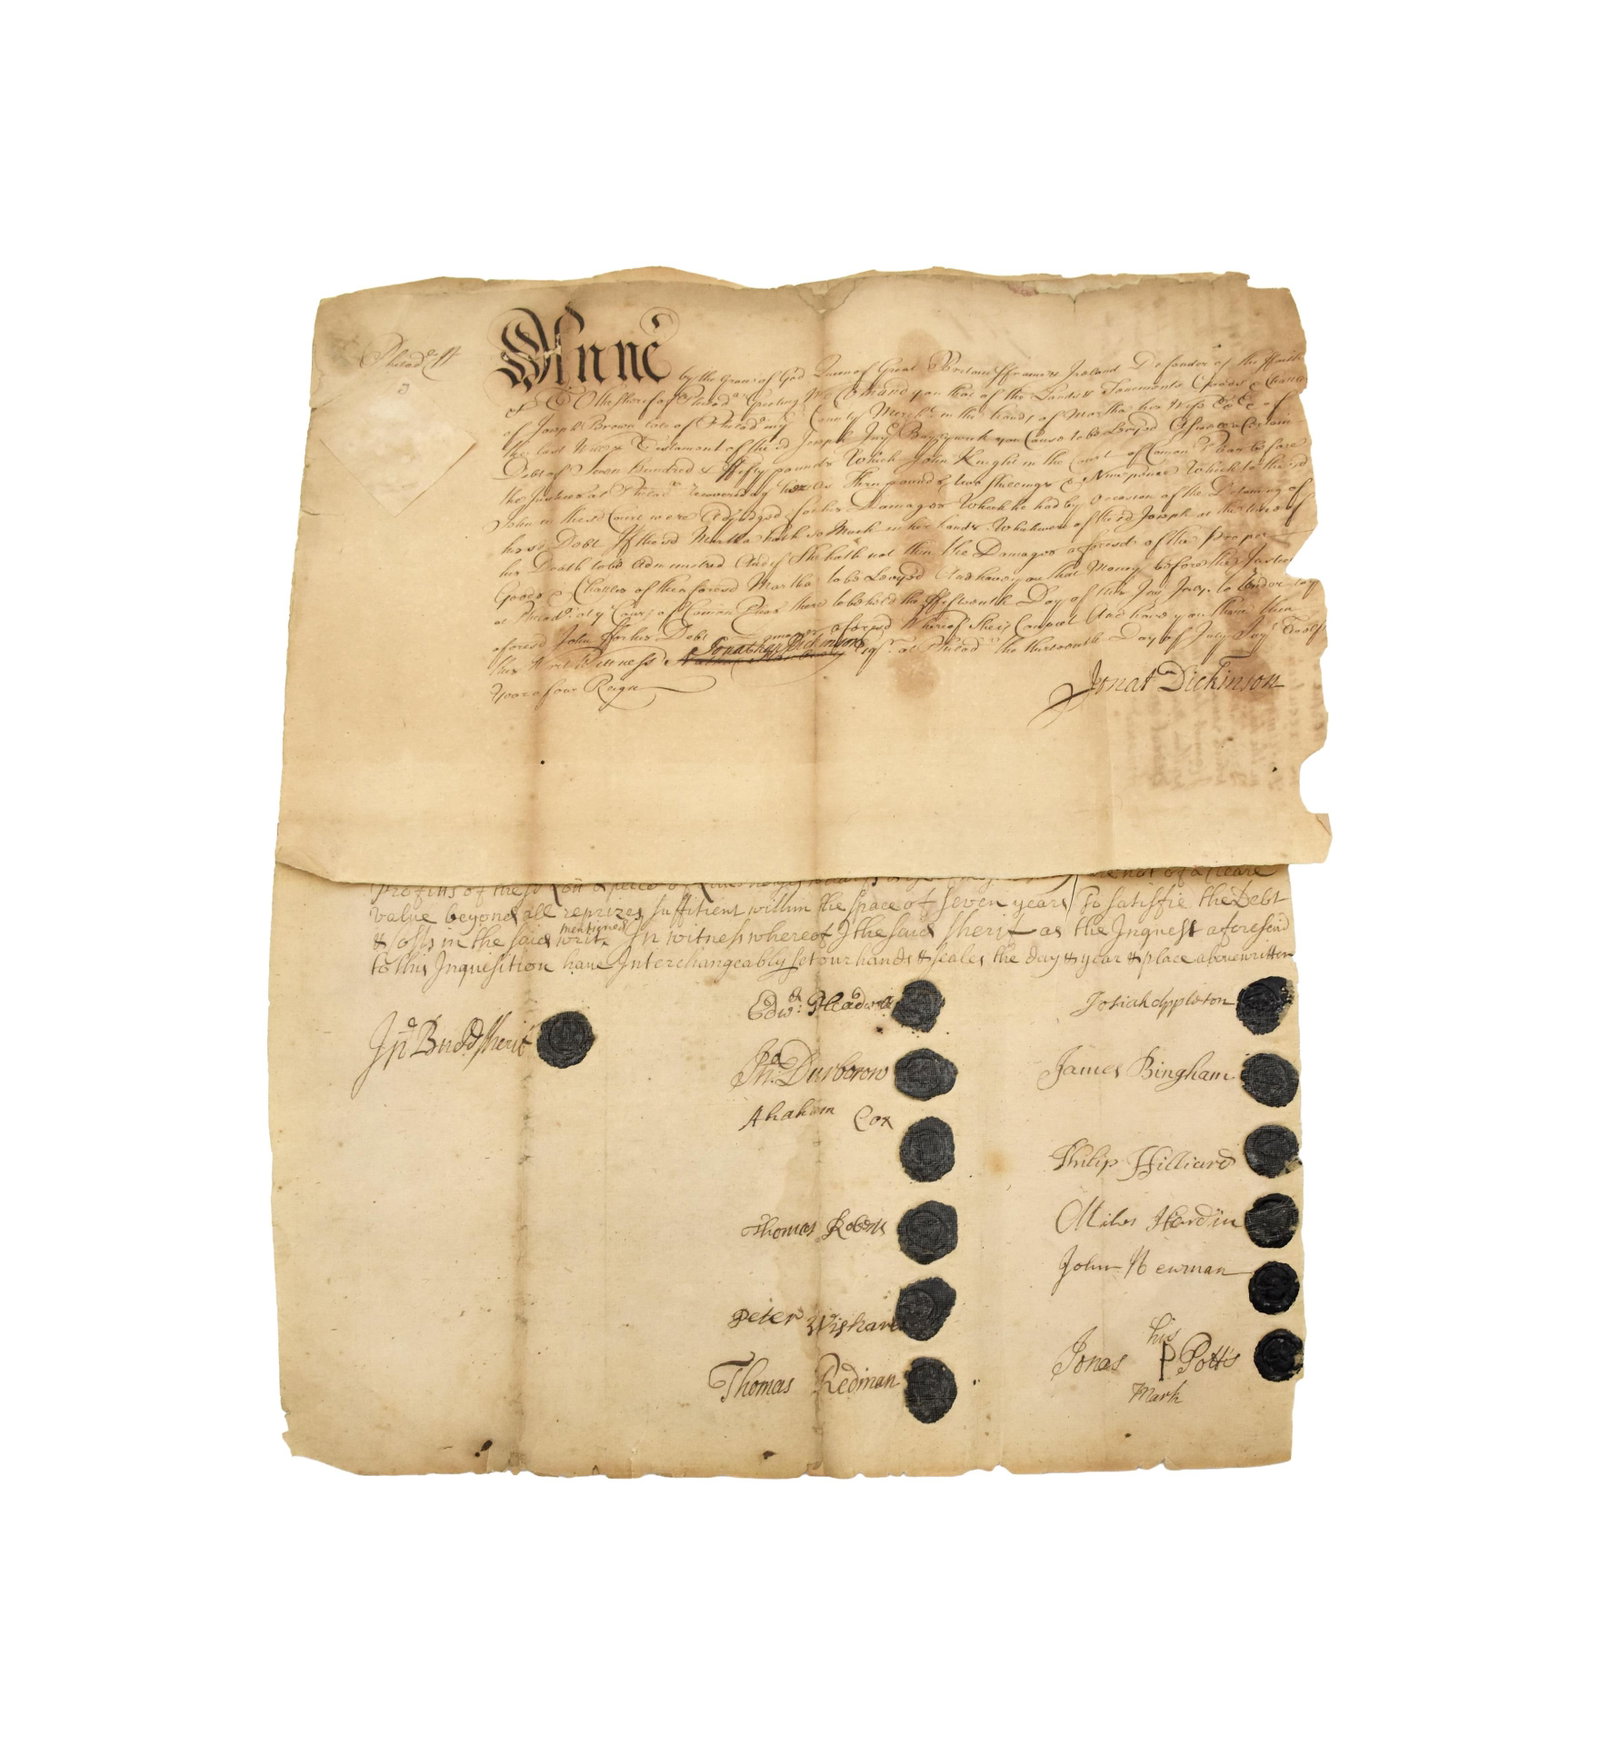 Philad.a ss
Anne by the Grace of God Queen of Great Brittain ffrance & Ireland Defender of the ffaith
&c To the Sherif of Philad.a Greeting We Comand you that of the Lands & Tenements Goods & Chattels
of Joseph Brown late of Philad.a County Merch.t in the hands of Martha his Wife Ex.x of
the last Will & Testament of the sd Joseph you Cause to be Levyed a Certain
Debt of Seven Hundred & ffifty pounds Which John Knight in the Court of Comon Pleas before
the Justices at Philad.a recovered ag.t her As Three pounds two shillings & Ninepence Which to the sd
John in the sd Court were Adjudged for his Damages Which he had by occasion of the Detaining of
his sd Debt If the sd Martha hath so Much in her hands Which were of the sd Joseph at the time of
his Death to be Administred And if She hath not then the Damages aforesd of the Proper
Goods & Chattles of the aforesd Martha to be Levyed And have you that Money before the Justices
at Philad.a County Court of Comon Pleas there to be held the ffifteenth Day of this Ins.t to render to the
aforesd John for his Debt & Damages aforesd Whereof She is Convict And have you then there
this Writ Wittness Jonathan Dickinson Esq.r at Philad.a the thirteenth Day of July in ye Twelfth
Year of our Reign
Jonat Dickinson
value beyond all reprizes suffitient within the space of seven years To satisfie the Debt
& Costs in the said writ mentioned In witness whereof I the said Sherif as the Inquest aforesaid
to this Inquisition have Interchangeably set our hands & seales the day & year & place above written
Jn.o Budd sherif
Edw.d
Josiah Appleton
Jn.o Durborow
James Bingham
Abraham Cox
Philip Hilliard
Thomas Roberts
Miles Hardin
John Newman
Peter Wishart
his
Jonas P Potts
Mark
Thomas Redman